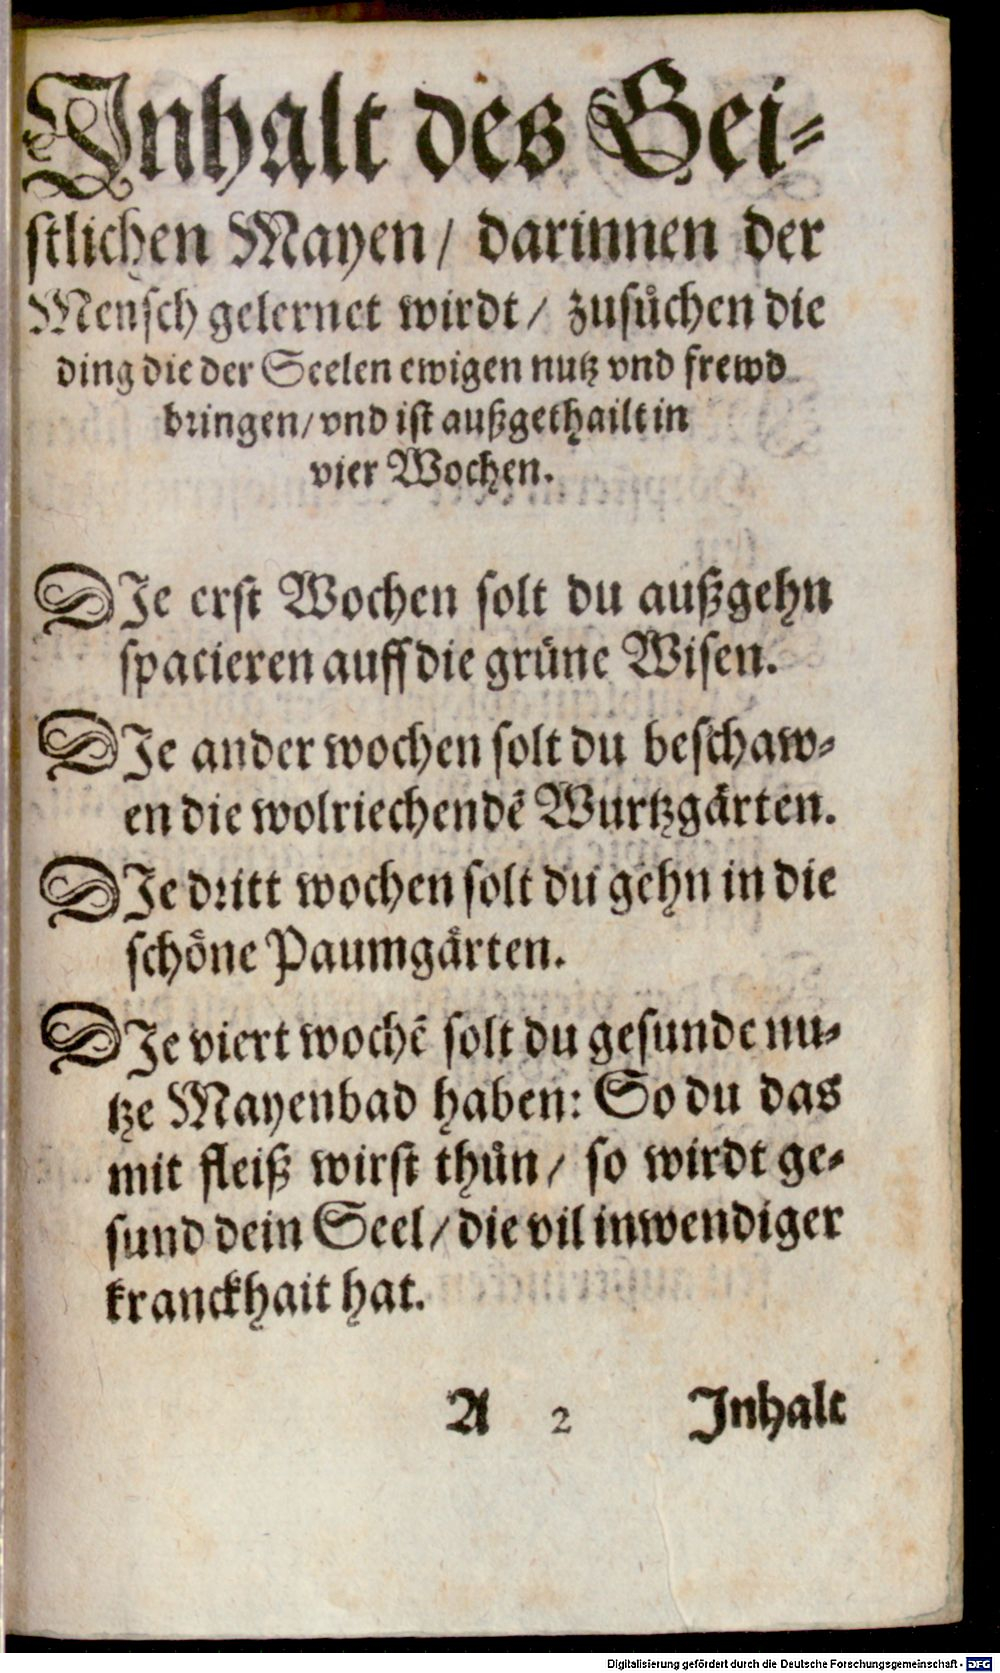 Inhalt des Gei-
stlichen Mayen/ darinnen der
Mensch gelernet wirdt/ zusůchen die
ding die der Seelen ewigen nutz vnd frewd
bringen/ vnd ist außgethailt in
vier Wochen.
DIe erst Wochen solt du außgehn
spacieren auff die grüne Wisen.
DIe ander wochen solt du beschaw-
en die wolriechendē Wurtzgärten.
DIe dritt wochen solt du gehn in die
schöne Paumgärten.
DIe viert wochē solt du gesunde nu-
tze Mayenbad haben: So du das
mit fleiß wirst thůn/ so wirdt ge-
sund dein Seel/ die vil inwendiger
kranckhait hat.
A 2 Inhalt
Digitalisierung gefördert durch die Deutsche Forschungsgemeinschaft - DFG